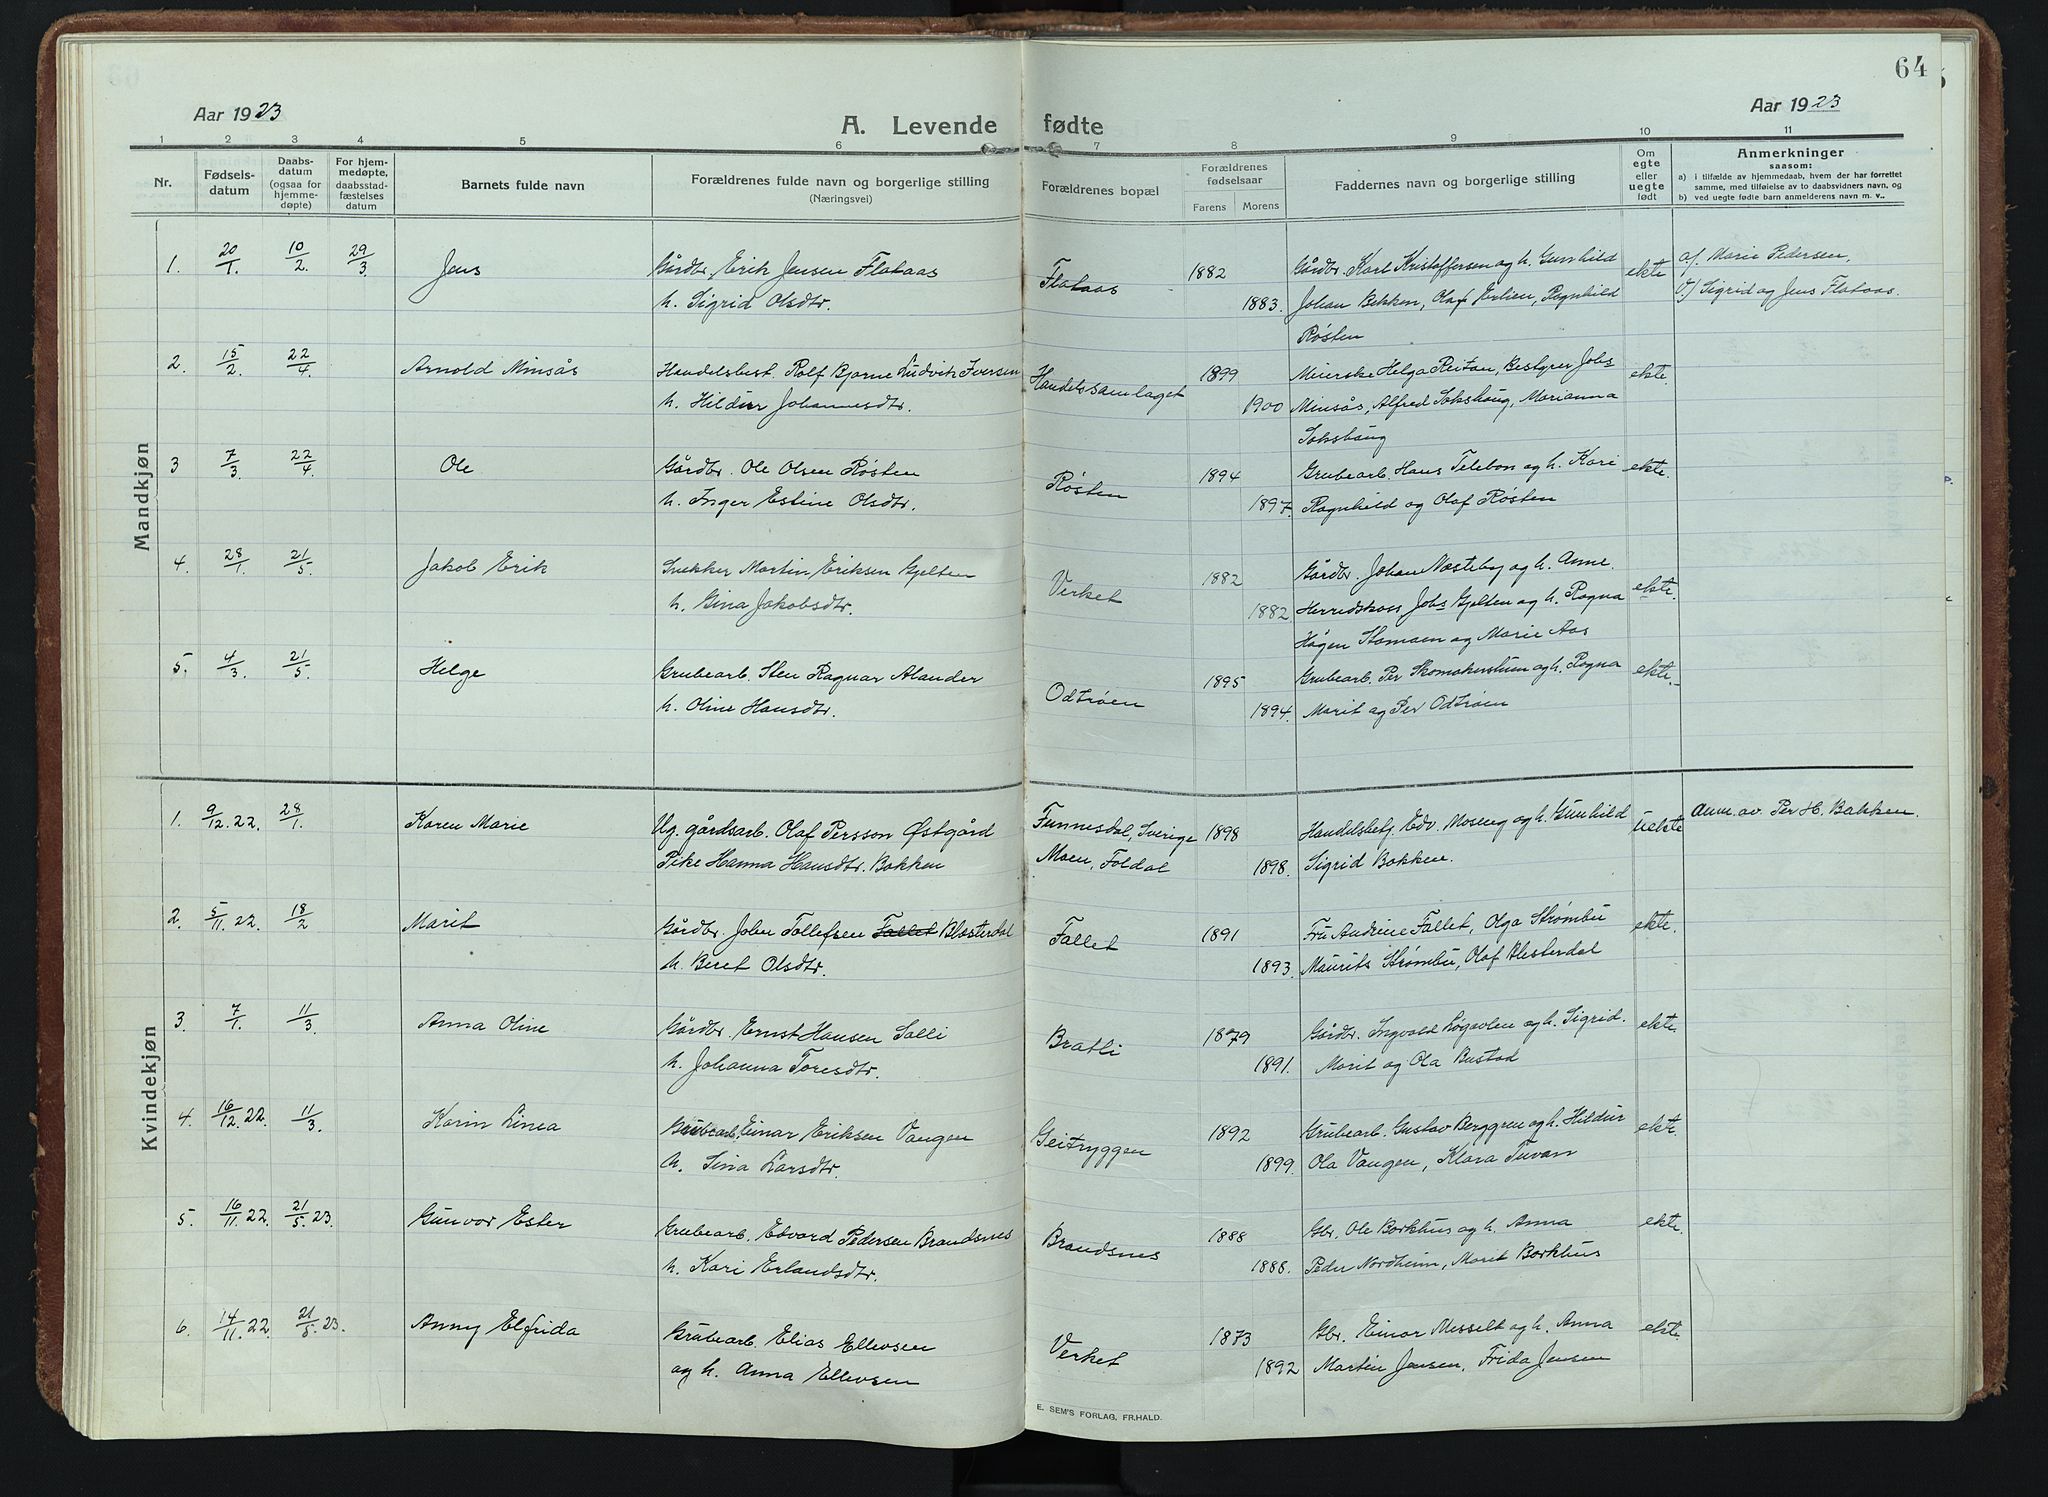 64
Aar 1923
A. Levende fødte
Aar 1923
1 2 3 4 5 6 7 8 9 10 11
Nr.
Fødsels-
datum
Daabs-
datum
(ogsaa for
hjemme-
døpte)
For hjem-
medøpte,
daabsstad-
fæstelses
datum
Barnets fulde navn
Forældrenes fulde navn og borgerlige stilling
(Næringsvei)
Forældrenes bopæl
Forældrenes
fødselsaar
Farens Morens
Faddernes navn og borgerlige stilling
Om
egte
eller
uegte
født
Anmerkninger
saasom:
a) i tilfælde av hjemmedaab, hvem der har forrettet
samme, med tilføielse av to daabsvidners navn, og
b) ved uegte fødte barn anmelderens navn m. v..
Mandkjøn
1. 20/1. 10/2. 29/3 Jens Gårdbr. Erik Jensen Flataas Flataas 1882 Gårdbr. Karl Kristoffersen og h. Gunhild ekte a/ Marie Pedersen,
h. Sigrid Olsdtr. 1883. Johan Bekken, Olaf Erlien, Ragnhild b/ Sigrid og Jens Flataas.
Røsten
2. 15/2. 22/4. Arnold Minsås Handelsbest. Rolf Bjarne Ludvik Iversen Handelssamlaget 1899 Meierske Helga Reitan, Bestyrer Johs ekte.
h. Hildur Johannesdtr. 1900 Minsås, Alfred Sokshaug, Marianna
Sokshaug
3 7/3. 22/4. Ole Gårdbr. Ole Olsen Røsten Røsten 1894 Grubearb. Hans Telebon og h. Kari ekte.
h. Inger Estine Olsdtr. 1897. Ragnhild og Olaf Røsten
4. 28/1. 21/5. Jakob Erik Snekker Martin Eriksen Gjelten Verket 1882 Gårdbr. Johan Næsteby og h. Anne. ekte.
h. Gina Jakobsdtr. 1882 Herredskass Johs Gjelten og h. Ragna
Hågen Stamoen og Marie Aas
5. 4/3. 21/5. Helge Grubearb. Sten Ragnar Alander Odtrøen 1895 Grubearb. Per Skomakerstuen og h. Ragna ekte.
h. Oline Hansdtr. 1894. Marit og Per Odtrøen
Kvindekjøn
1. 9/12. 22. 28/1. Karen Marie Ug. gårdsarb. Olaf Persson Østgård Funnesdal, Sverige 1898 Handelsbetj. Edv. Moseng og h. Gunhild uekte Anm. av Per H. Bakken.
Pike Hanna Hansdtr. Bakken Moen, Foldal 1898. Sigrid Bakken.
2. 5/11. 22. 18/2 Marit Gårdbr. John Tollefsen Fallet Blæsterdal Fallet 1891 Fru Andrine Fallet, Olga Strømbu ekte.
h. Beret Olsdtr. 1893. Maurits Strømbu, Olaf Blesterdal
3. 7/1. 11/3. Anna Oline Gårdbr. Ernst Hansen Salli Bratli 1879 Gårdbr. Ingvald Løgavlen og h. Sigrid. ekte
h. Johanna Toresdtr. 1891. Marit og Ola Bustad
4. 16/12. 22. 11/3. Karin Linea Grubearb. Einar Eriksen Vangen Geitryggen 1892 Grubearb. Gustav Berggren og h. Hildur ekte.
h. Sina Larsdtr. 1899. Ola Vangen, Klara Tuvan
5. 16/11. 22. 21/5. 23. Gunvor Ester Grubearb. Edvard Pedersen Brandsnes Brandsnes 1888 Gbr. Ole Borkhus og h. Anna ekte.
h. Kari Erlandsdtr. 1888. Peder Nordheim, Marit Borkhus
6. 14/11. 22. 21/5. 23. Anny Elfrida Grubearb. Elias Ellevsen Verket 1873 Gbr. Einar Messelt og h. Anna ekte.
og h. Anna Ellevsen 1892 Martin Jensen, Frida Jensen
E. SEM'S FORLAG, FR.HALD.